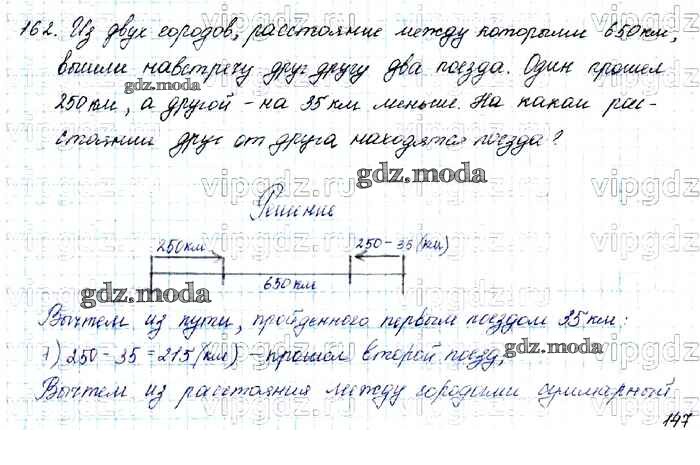 162. Из двух городов, расстояние между которыми 650 км,
вышли навстречу друг другу два поезда. Один прошел
250 км, а другой – на 35 км меньше. На каком рас-
стоянии друг от друга находятся поезда?
gdz.moda
gdz.moda
Решение
250 км 250 – 35 (км)
650 км
gdz.moda
Вычтем из пути, пройденного первым поездом 35 км:
1) 250 – 35 = 215 (км) – прошел второй поезд,
gdz.moda
Вычтем из расстояния между городами суммарный
147
vipgdz.ru